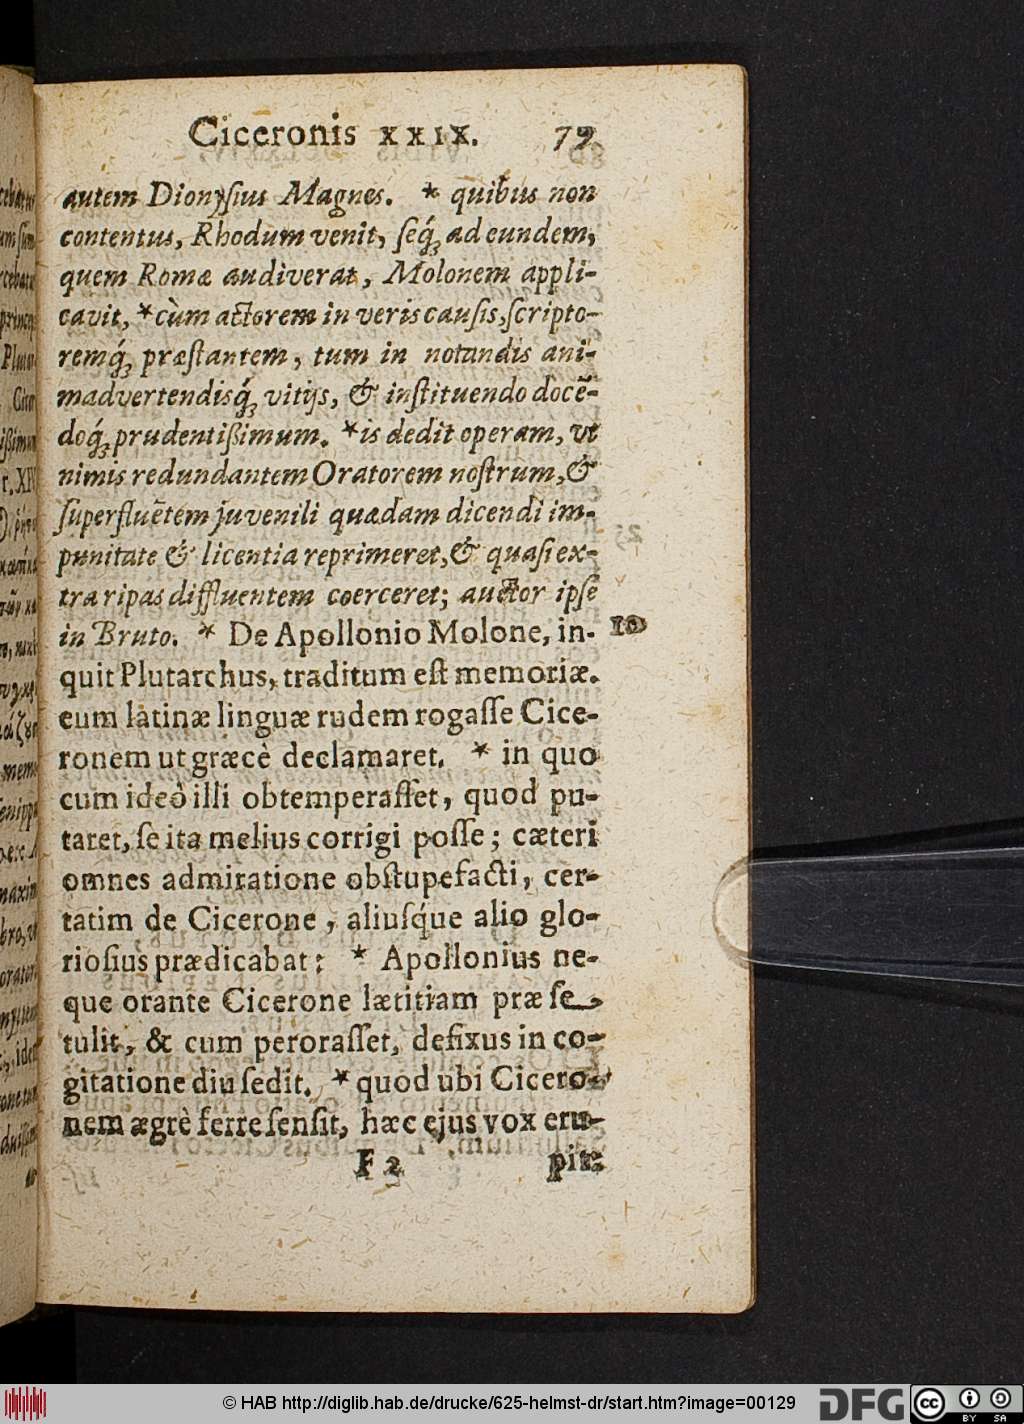 Ciceronis XXIX. 79
autem Dionyſius Magnes. * quibus non
contentus, Rhodum venit, ſeq́ꝫ ad eundem,
quem Romæ audiverat, Molonem appli-
cavit, * cùm actorem in veris cauſis, ſcripto-
remq́ꝫ præſtantem, tum in notandis ani-
madvertendisq́ꝫ vitijs, & inſtituendo docẽ-
doq́ꝫ prudentißimum. * is dedit operam, vt
nimis redundantem Oratorem noſtrum, &
ſuperfluẽtem juvenili quadam dicendi im-
punitate & licentia reprimeret, & quaſi ex-
tra ripas diffluentem coerceret; auctor ipſe
in Bruto. * De Apollonio Molone, in- 10
quit Plutarchus, traditum eſt memoriæ.
eum latinæ linguæ rudem rogaſſe Cice-
ronem ut græcè declamaret. * in quo
cum ideò illi obtemperaſſet, quod pu-
taret, ſe ita melius corrigi poſſe; cæteri
omnes admiratione obſtupefacti, cer-
tatim de Cicerone, aliuſq́ue alio glo-
rioſius prædicabat: * Apollonius ne-
que orante Cicerone lætitiam præ ſe
tulit, & cum peroraſſet, defixus in co-
gitatione diu ſedit. * quod ubi Cicero-
nem ægrè ferre ſenſit, hæc ejus vox eru-
F 2 pit:
© HAB http://diglib.hab.de/drucke/625-helmst-dr/start.htm?image=00129
DFG
cc BY SA